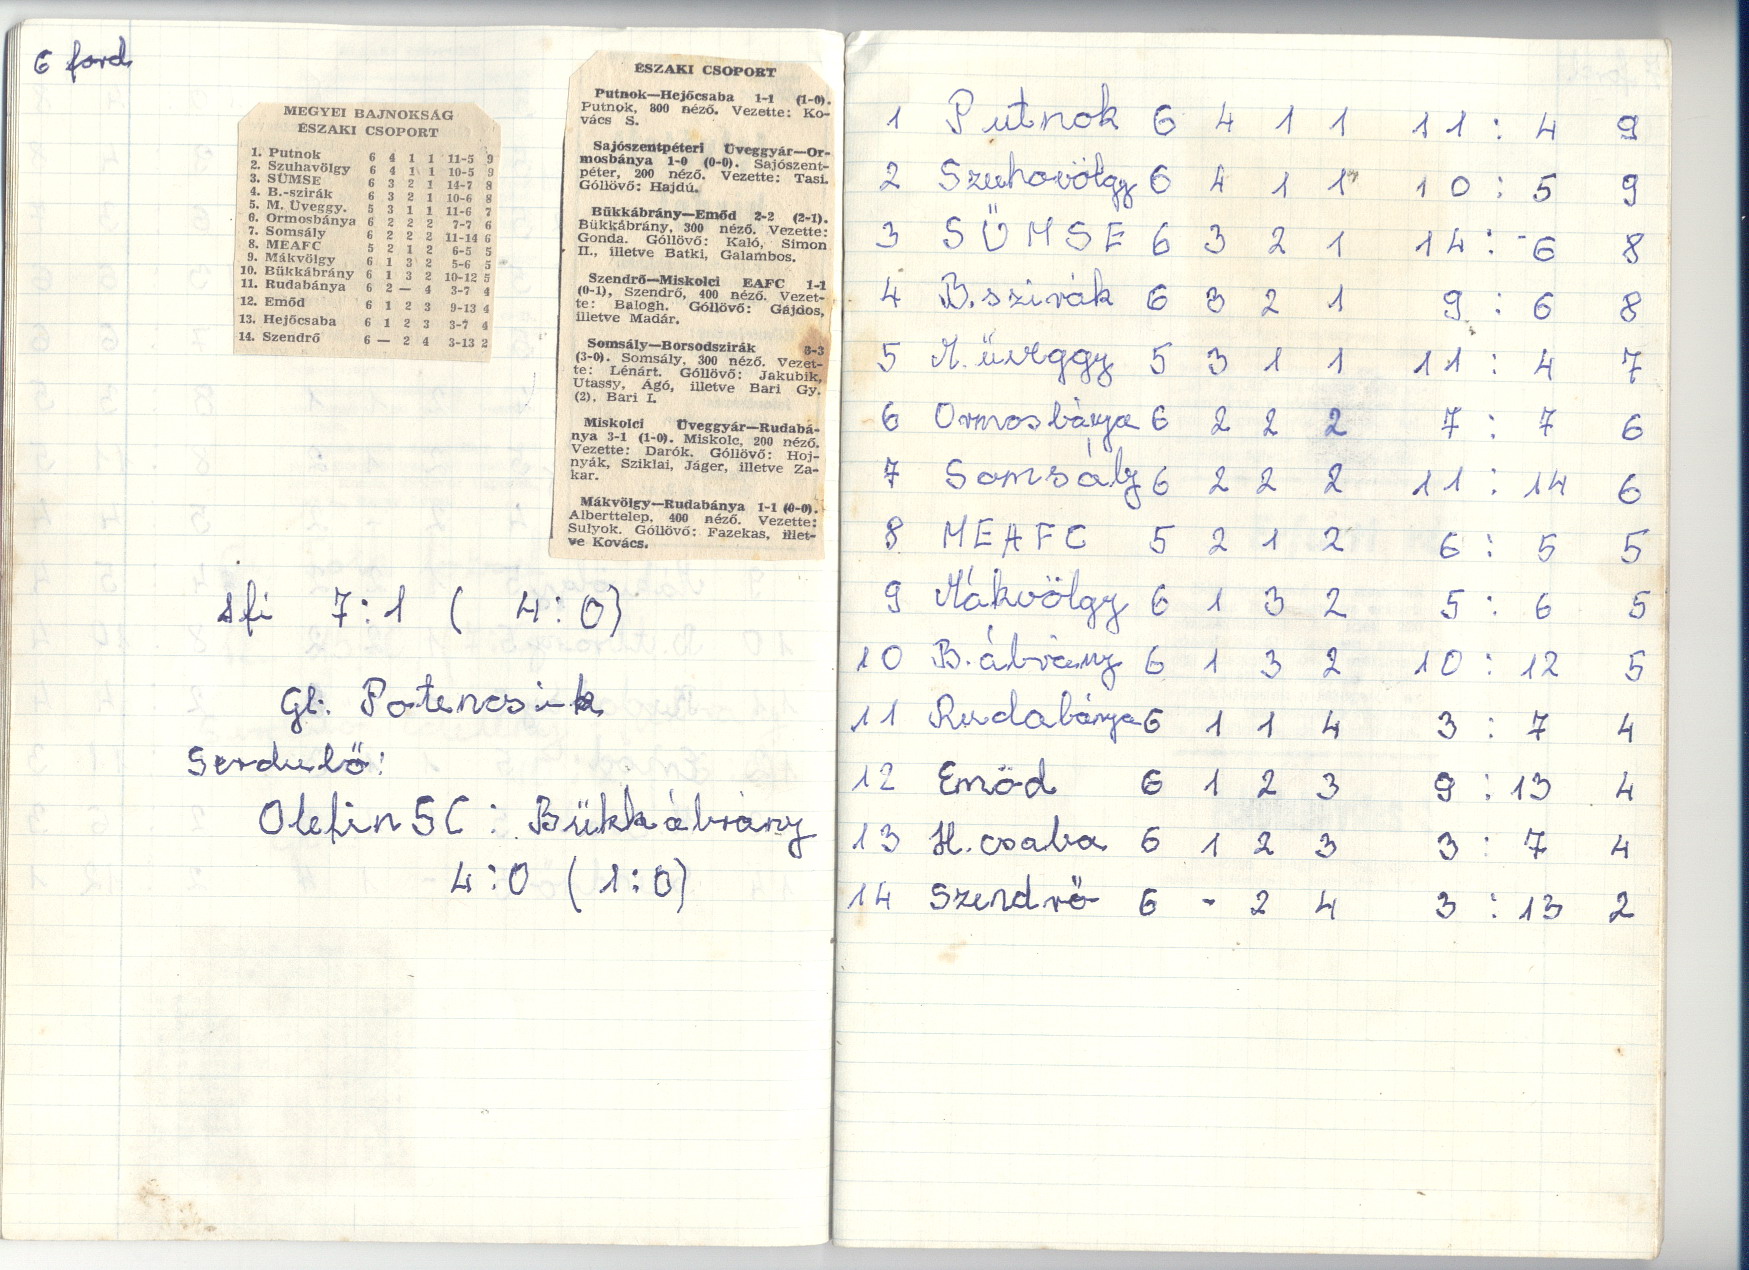 6 ford.
MEGYEI BAJNOKSÁG
ÉSZAKI CSOPORT
1. Putnok 6 4 1 1 11-5 9
2. Szuhavölgy 6 4 1 1 10-5 9
3. SÜMSE 6 3 2 1 14-7 8
4. B.-szirák 6 3 2 1 10-6 8
5. M. Üveggy. 5 3 1 1 11-6 7
6. Ormosbánya 6 2 2 2 7-7 6
7. Somsály 6 2 2 2 11-14 6
8. MEAFC 5 2 1 2 6-5 5
9. Mákvölgy 6 1 3 2 5-6 5
10. Bükkábrány 6 1 3 2 10-12 5
11. Rudabánya 6 2 — 4 3-7 4
12. Emőd 6 1 2 3 9-13 4
13. Hejőcsaba 6 1 2 3 3-7 4
14. Szendrő 6 — 2 4 3-13 2
ÉSZAKI CSOPORT
Putnok—Hejőcsaba 1-1 (1-0).
Putnok, 800 néző. Vezette: Ko-
vács S.
Sajószentpéteri Üveggyár—Or-
mosbánya 1-0 (0-0). Sajószent-
péter, 200 néző. Vezette: Tasi.
Góllövő: Hajdú.
Bükkábrány—Emőd 2-2 (2-1).
Bükkábrány, 300 néző. Vezette:
Gonda. Góllövő: Kaló, Simon
II., illetve Batki, Galambos.
Szendrő—Miskolci EAFC 1-1
(0-1), Szendrő, 400 néző. Vezet-
te: Balogh. Góllövő: Gájdos,
illetve Madár.
Somsály—Borsodszirák 3-3
(3-0). Somsály, 300 néző. Vezet-
te: Lénárt. Góllövő: Jakubik,
Utassy, Ágó, illetve Bari Gy.
(2), Bari I.
Miskolci Üveggyár—Rudabá-
nya 3-1 (1-0). Miskolc, 200 néző.
Vezette: Darók. Góllövő: Hoj-
nyák, Sziklai, Jáger, illetve Za-
kar.
Mákvölgy—Rudabánya 1-1 (0-0).
Alberttelep, 400 néző. Vezette:
Sulyok. Góllövő: Fazekas, illet-
ve Kovács.
Ifi 7:1 ( 4:0)
Gl: Potencsik
Serdülő:
Olefin SC : Bükkábrány
4:0 (1:0)
1 Putnok 6 4 1 1 11 : 4 9
2 Szuhavölgy 6 4 1 1 10 : 5 9
3 SÜMSE 6 3 2 1 14 : 6 8
4 B.szirák 6 3 2 1 9 : 6 8
5 M.üveggy 5 3 1 1 11 : 4 7
6 Ormosbánya 6 2 2 2 7 : 7 6
7 Somsály 6 2 2 2 11 : 14 6
8 MEAFC 5 2 1 2 6 : 5 5
9 Mákvölgy 6 1 3 2 5 : 6 5
10 B.ábrány 6 1 3 2 10 : 12 5
11 Rudabánya 6 1 1 4 3 : 7 4
12 Emőd 6 1 2 3 9 : 13 4
13 H.csaba 6 1 2 3 3 : 7 4
14 Szendrő 6 - 2 4 3 : 13 2